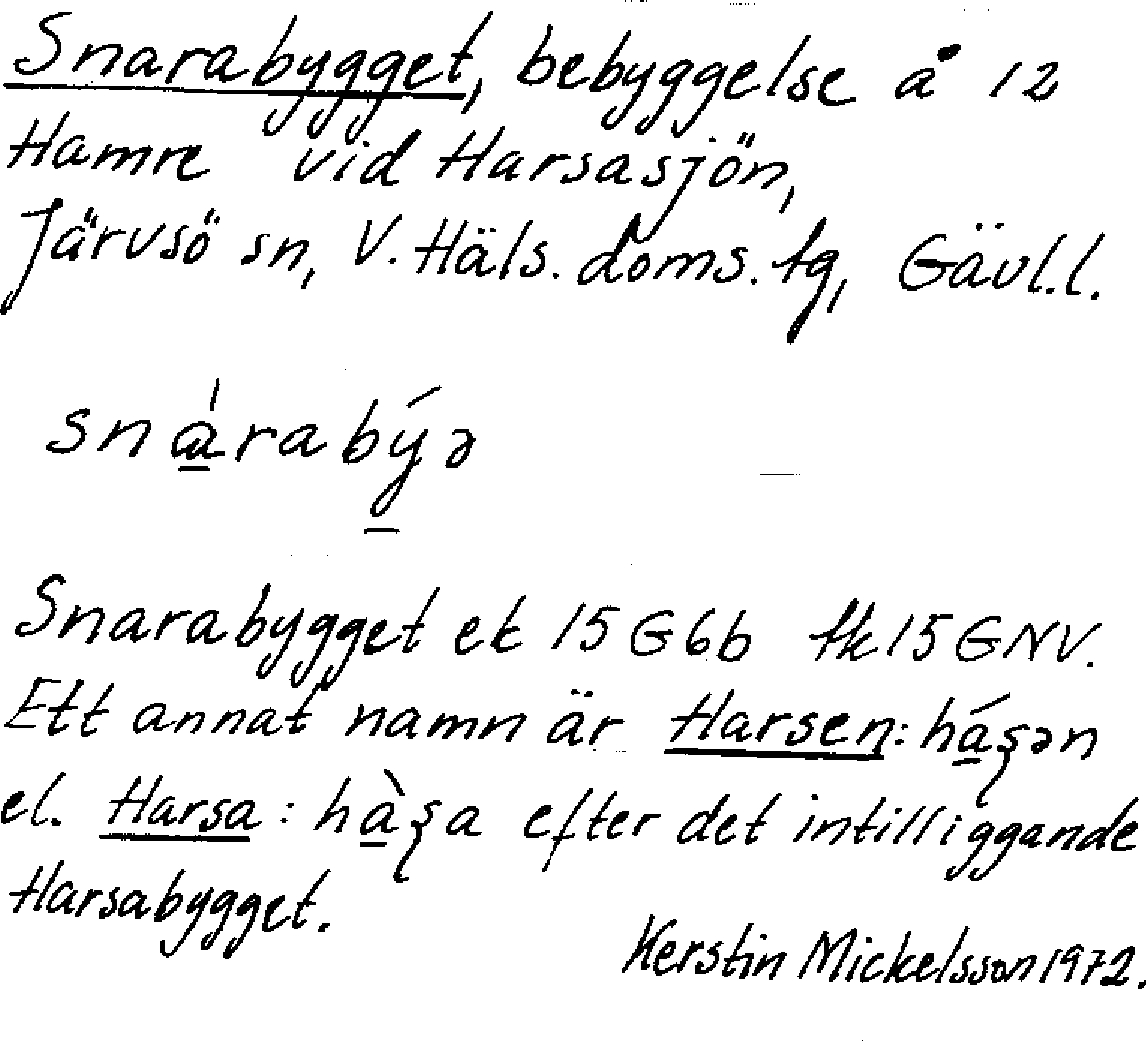 Snarabygget, bebyggelse å 12
Hamre vid Harsasjön,
Järvsö sn, V. Häls. doms. tg, Gävl.l.
snàrabýə
Snarabygget ek 15G6b tk15GNV.
Ett annat namn är Harsen: háʂən
el. Harsa: hàʂa efter det intilliggande
Harsabygget.
Kerstin Mickelsson 1972.